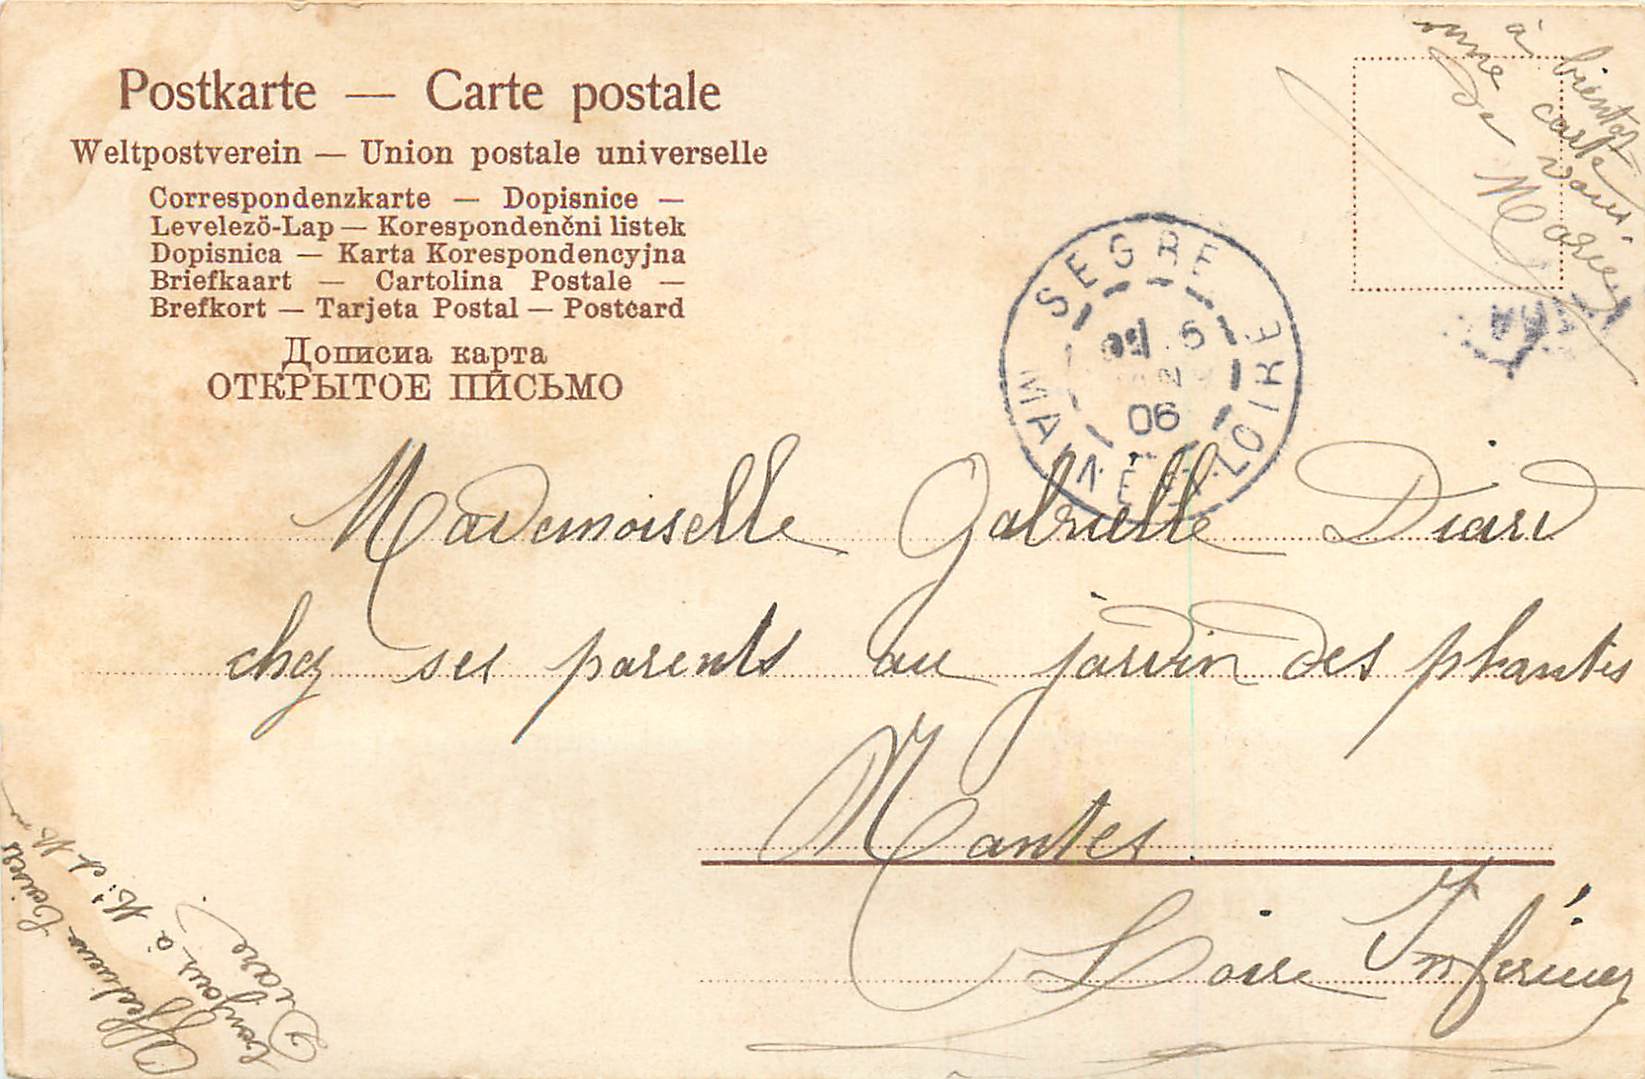 Postkarte — Carte postale
Weltpostverein — Union postale universelle
Correspondenzkarte — Dopisnice —
Levelező-Lap — Korespondenčni listek
Dopisnica — Karta Korespondencyjna
Briefkaart — Cartolina Postale —
Brefkort — Tarjeta Postal — Postcard
Дописна карта
ОТКРЫТОЕ ПИСЬМО
à bientot
une carte
de vous.
Marie
SEGRE
MAINE-ET-LOIRE
06
Mademoiselle Gabrielle Diard
chez ses parents au jardin des plantes
Nantes
Loire Inférieure
Affectueux baisers
bonjour à Mr et Mme
Diard